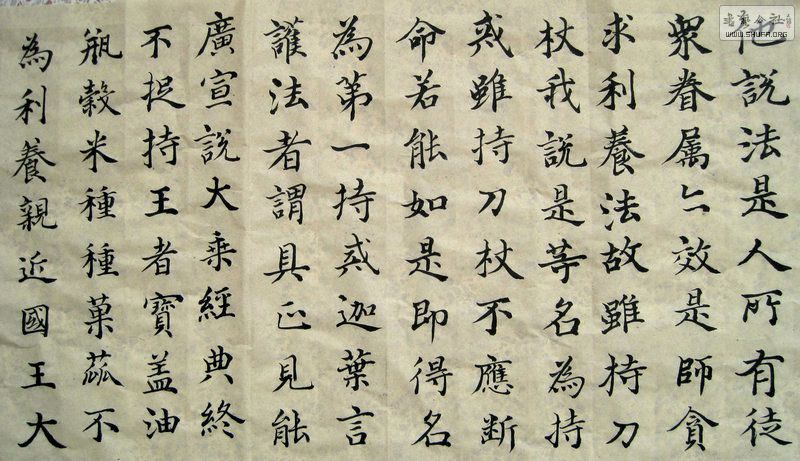 他說法是人所有徒
眾眷属亦效是師貪
求利養法故雖持刀
杖我說是等名為持
戒雖持刀杖不應断
命若能如是即得名
為第一持戒迦葉言
護法者謂具正見能
廣宣說大乘經典終
不捉持王者寶盖油
瓶穀米種種菓蓏不
為利養親近國王大
書藝公社
WWW.SHUFA.ORG